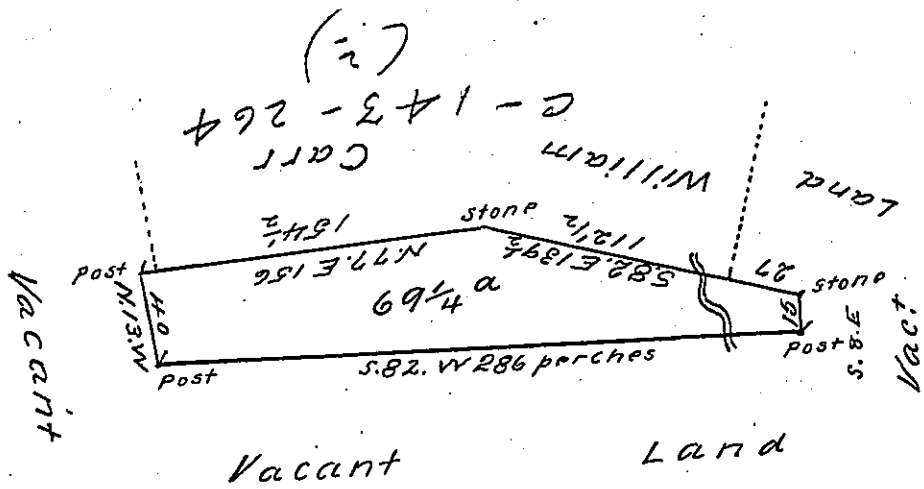 (2)
C-143-264
William Carr
Land
154½
N.77.E 156
stone
112½
S.82.E 139½
27
stone
Post
N.13.W
40
Post
69¼ a
15
S.8.E
Post
S.82.W 286 perches
Vacant
Vact
Vacant Land